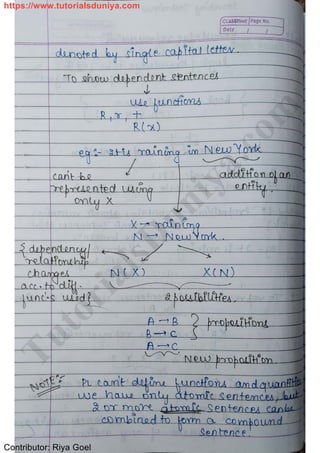 https://www.tutorialsduniya.com
CLASSMATE Page No.
Date / /
denoted by single capital letter.
To show dependent sentences
↓
use functions
R, r, +
R(x)
eg:- It is raining in New York
can't be represented using only X
addition of an entity.
X → raining
N → New York.
{dependency/ relationship changes acc. to diff. func's used}
N(X) X(N)
2 possibilities.
A → B
B → C } propositions
A → C
New proposition.
NOTE:- PL can't define functions and quantities
we have only atomic sentences, but
2 or more atomic sentences can be
combined to form a compound
sentence.
Tutorialsduniya.com
Contributor: Riya Goel